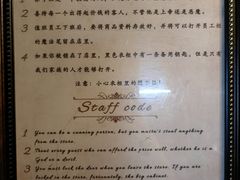 2 善待每一个出得起价钱的客人,不管他是上帝还是恶魔。
3 值班员工下班后,要将商品资料存放好,并且可以打开员工柜
的魔法笔留在店里。
4 如果你被锁在了店里,黑色衣柜中有一条备用钥匙,但是只有
我们家族的人才能够打开。
注意:小心衣柜里的
Staff code
1 You can be a cunning person, but you mustn't steal anything
from the store.
2 Treat every guest who can afford the price well, whether he is a
God or a devil.
3 You must lock the door when you leave the store. If you are
locked in the store, fortunately, the big cabinet